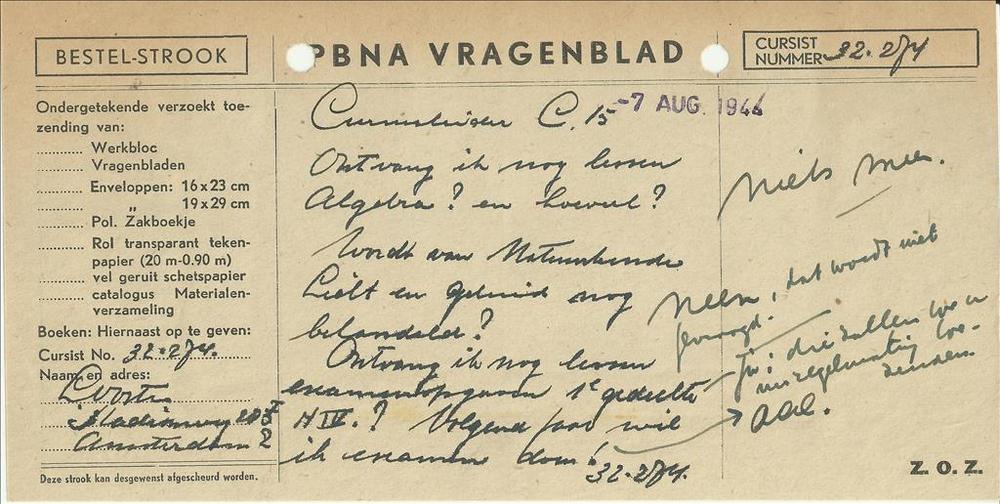 BESTEL-STROOK
PBNA VRAGENBLAD
CURSIST
NUMMER 32.274
-7 AUG. 1944
Ondergetekende verzoekt toe-
zending van:
.......... Werkbloc
.......... Vragenbladen
.......... Enveloppen: 16 x 23 cm
.......... „ 19 x 29 cm
.......... Pol. Zakboekje
.......... Rol transparant teken-
papier (20 m-0.90 m)
.......... vel geruit schetspapier
.......... catalogus Materialen-
verzameling
Boeken: Hiernaast op te geven:
Cursist No. 32.274.
Naam en adres:
Stadionweg
Amsterdam Z
Deze strook kan desgewenst afgescheurd worden.
Cursusleider C. 15
Ontvang ik nog lessen
Algebra? en hoeveel?
Wordt van Natuurkunde
Licht en geluid nog
behandeld?
Ontvang ik nog lessen
examenopgaven 1e gedeelte
N IV.? Volgend jaar wil
ik examen doen!
32-274.
Niets meer.
Neen, dat wordt niet
gevraagd.
Ja: die zullen we u
onregelmatig toe-
zenden.
Z. O. Z.